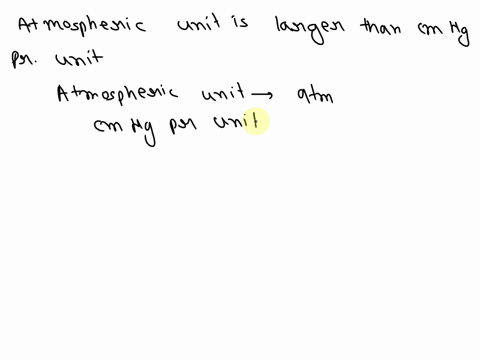 Atmospheric unit is larger than cm Hg
pr. unit
Atmospheric unit → atm
cm Hg pr unit